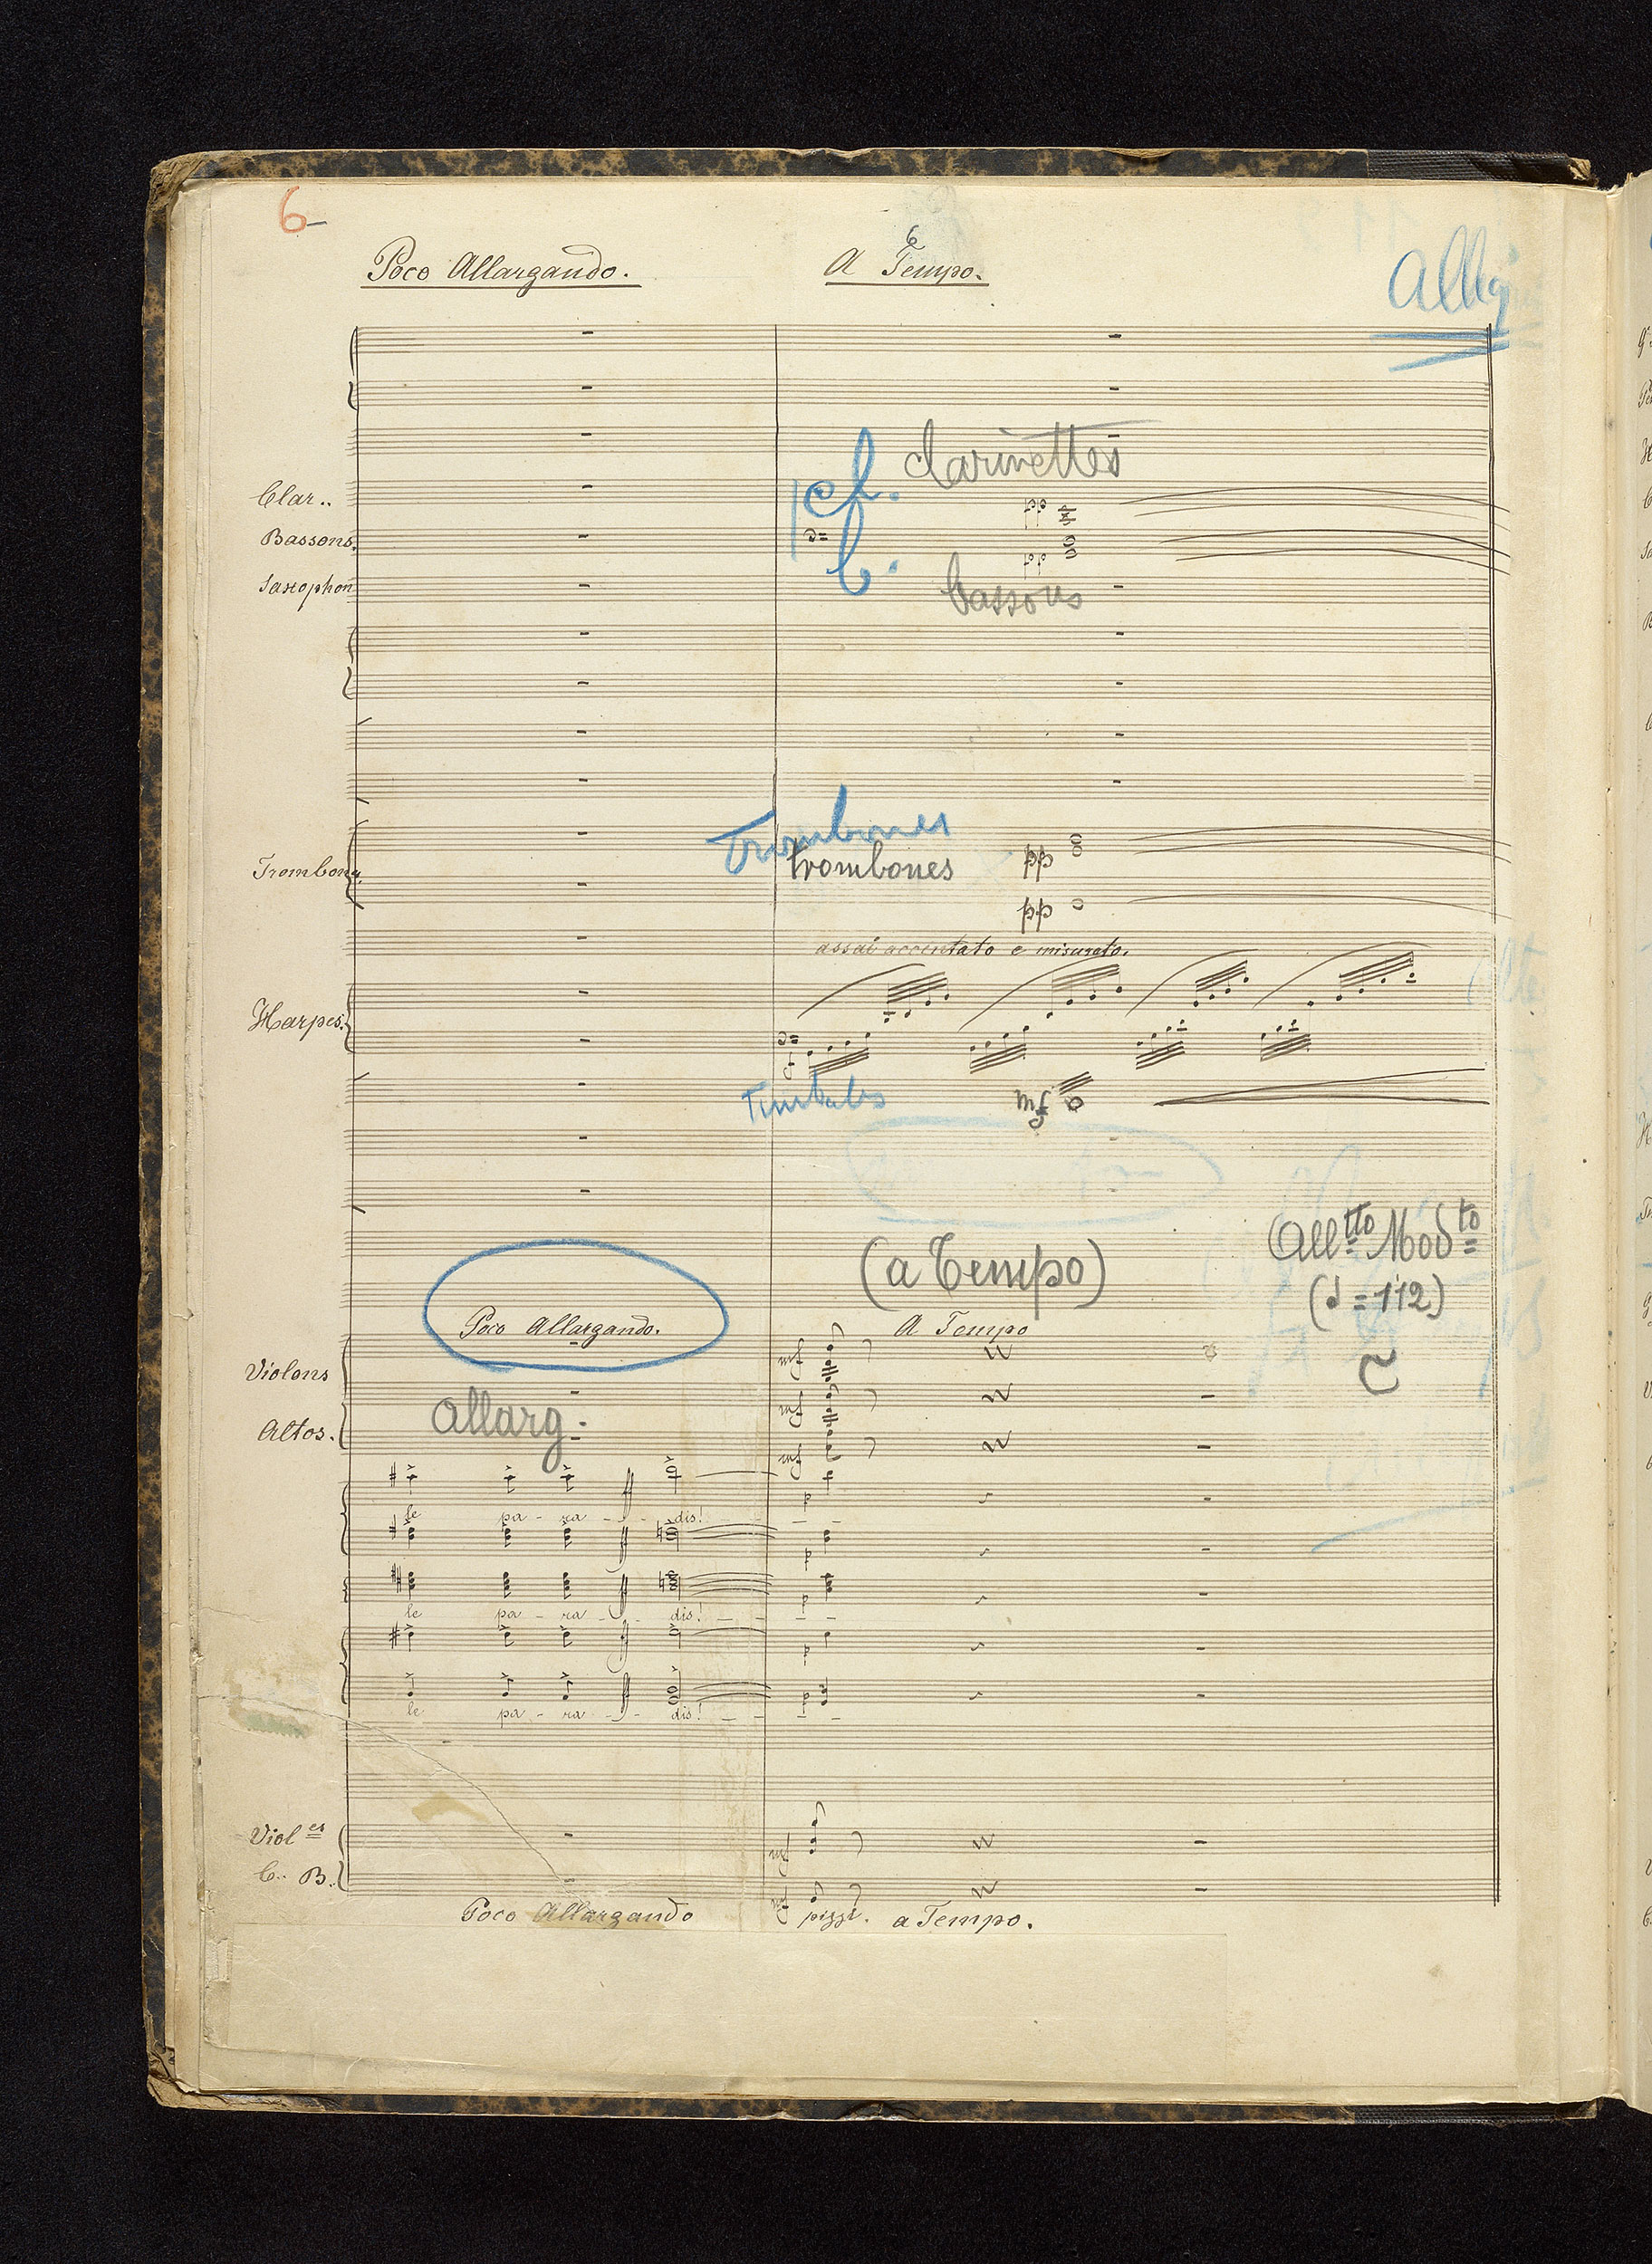 6
6
Poco Allargando. A Tempo.
Clar..
clarinettes
Cl.
Bassons.
b.
bassons
Saxophon
Trombones
Trombones.
trombones
pp
pp
assai accentato e misurato.
Harpes.
f
Timbales
mf
(a Tempo)
Alltto Modto
(♩=112)
Poco Allargando. A Tempo
Violons
mf
mf
Altos.
allarg.
mf
p
le pa - ra - - dis! - - - -
p
p
le pa - ra - - dis! - - - -
p
p
le pa - ra - - dis! - - - -
Violes
mf
C. B.
mf
Poco Allargando pizzi. a Tempo.